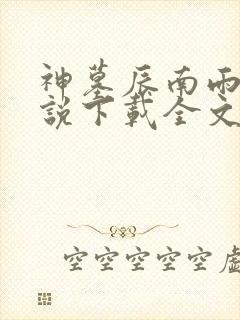 神墓辰南雨
説下載全文
空空空空空虛